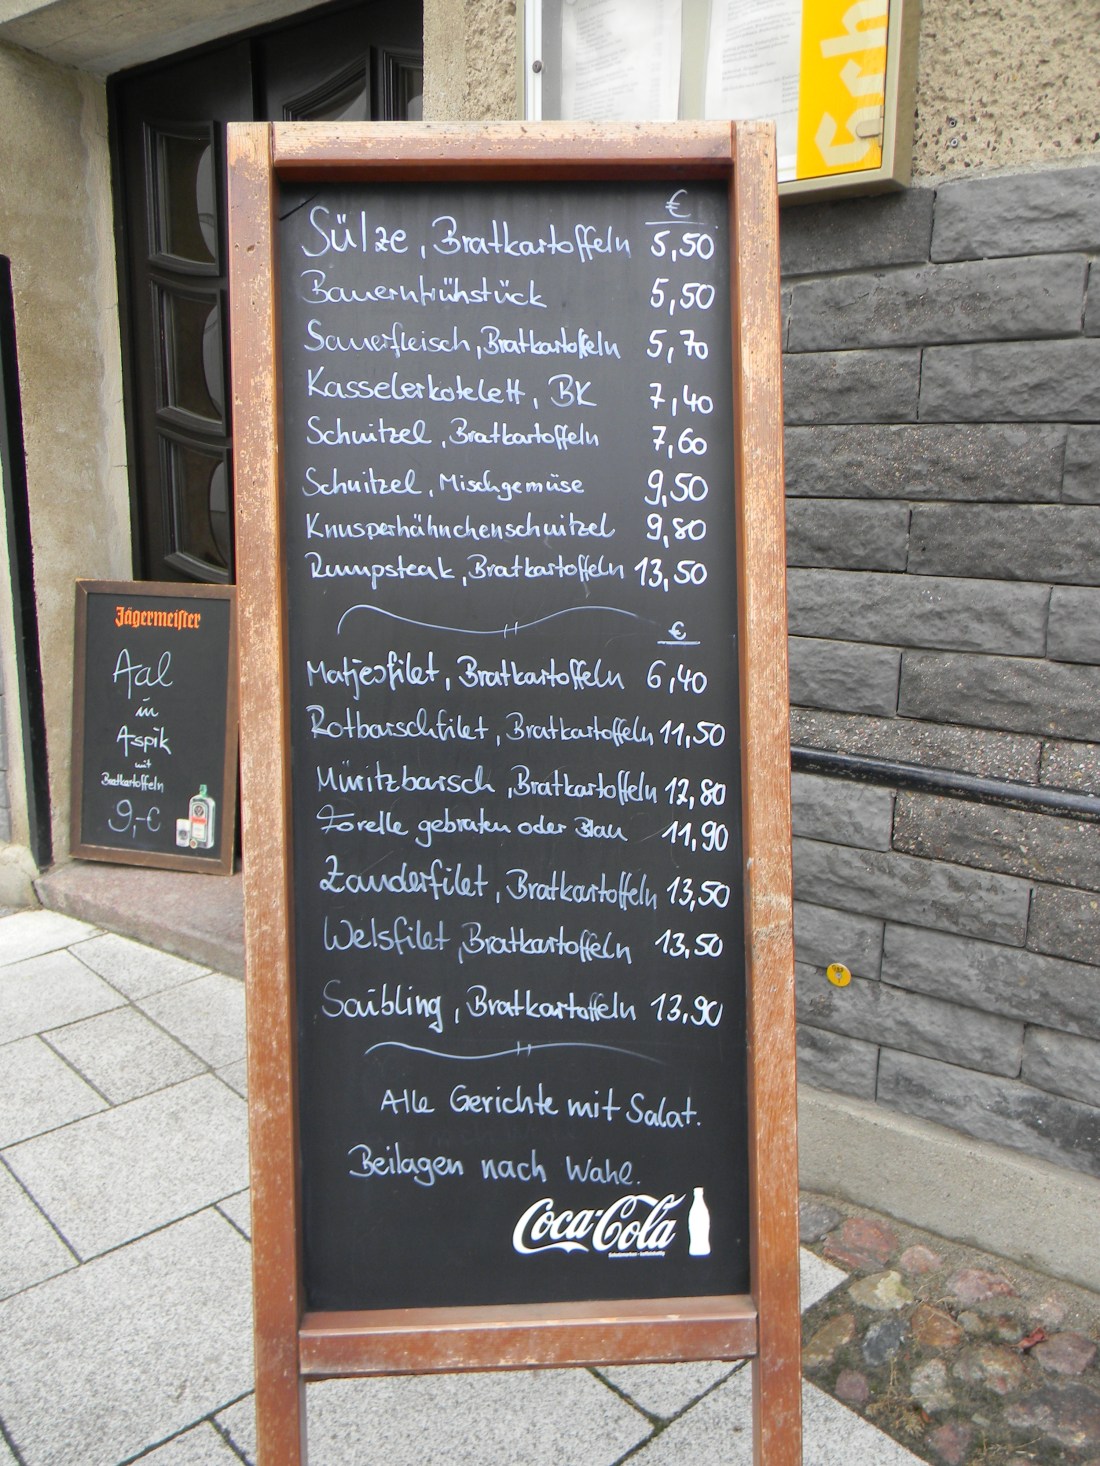 €
Sülze, Bratkartoffeln 5,50
Bauernfrühstück 5,50
Sauerfleisch, Bratkartoffeln 5,70
Kasselerkotelett, BK 7,40
Schnitzel, Bratkartoffeln 7,60
Schnitzel, Mischgemüse 9,50
Knusperhähnchenschnitzel 9,80
Rumpsteak, Bratkartoffeln 13,50
€
Matjesfilet, Bratkartoffeln 6,40
Rotbarschfilet, Bratkartoffeln 11,50
Müritzbarsch, Bratkartoffeln 12,80
Forelle gebraten oder Blau 11,90
Zanderfilet, Bratkartoffeln 13,50
Welsfilet, Bratkartoffeln 13,50
Saibling, Bratkartoffeln 13,90
Alle Gerichte mit Salat.
Beilagen nach Wahl.
Coca-Cola
Jägermeister
Aal
in
Aspik
mit
Bratkartoffeln
9,-€
Sch